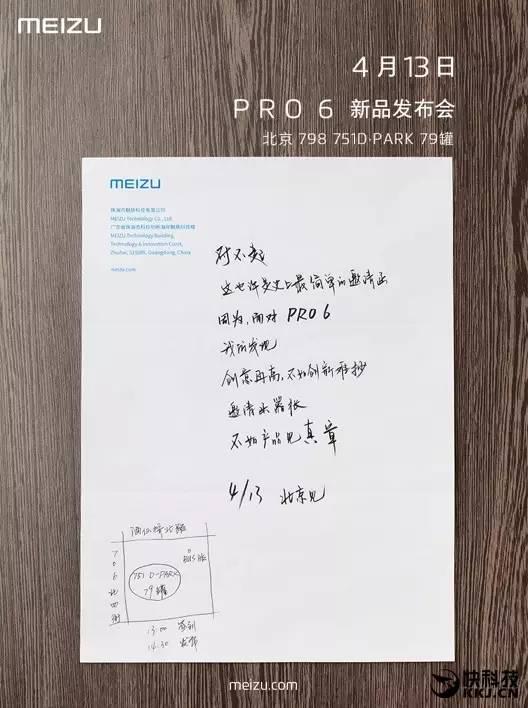 MEIZU
4月13日
PRO 6 新品发布会
北京 798 751D·PARK 79罐
MEIZU
珠海市魅族科技有限公司
MEIZU Technology Co., Ltd.
广东省珠海市科技创新海岸魅族科技楼
MEIZU Technology Building,
Technology & Innovation Coast,
Zhuhai, 519085, Guangdong, China
meizu.com
对不起
这也许是史上最简单的邀请函
因为,面对 PRO 6
我们发现
创意再高,不如创新难抄
邀请 嚣张
不如产品见真章
4/13 北京见
酒仙桥北路
706北四街
BUS 站
751 D-PARK
79罐
13:00 签到
14:30 发布
meizu.com
快科技
KKJ.CN